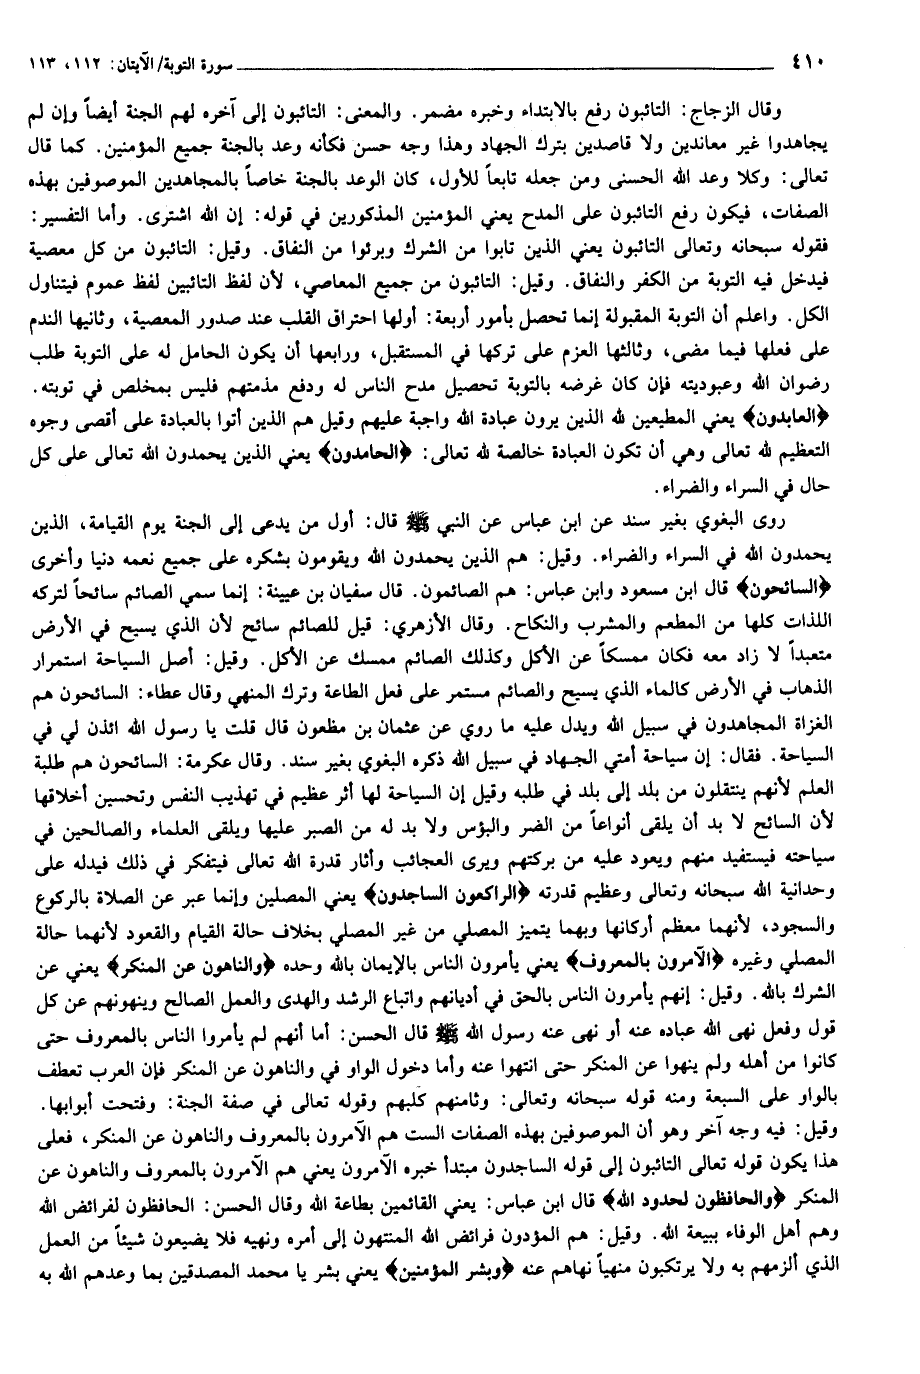 ٤١٠ سورة التوبة/ الآيتان: ١١٢، ١١٣
وقال الزجاج: التائبون رفع بالابتداء وخبره مضمر. والمعنى: التائبون إلى آخره لهم الجنة أيضاً وإن لم
يجاهدوا غير معاندين ولا قاصدين بترك الجهاد وهذا وجه حسن فكأنه وعد بالجنة جميع المؤمنين. كما قال
تعالى: وكلا وعد الله الحسنى ومن جعله تابعاً للأول، كان الوعد بالجنة خاصاً بالمجاهدين الموصوفين بهذه
الصفات، فيكون رفع التائبون على المدح يعني المؤمنين المذكورين في قوله: إن الله اشترى. وأما التفسير:
فقوله سبحانه وتعالى التائبون يعني الذين تابوا من الشرك وبرئوا من النفاق. وقيل: التائبون من كل معصية
فيدخل فيه التوبة من الكفر والنفاق. وقيل: التائبون من جميع المعاصي، لأن لفظ التائبين لفظ عموم فيتناول
الكل. واعلم أن التوبة المقبولة إنما تحصل بأمور أربعة: أولها احتراق القلب عند صدور المعصية، وثانيها الندم
على فعلها فيما مضى، وثالثها العزم على تركها في المستقبل، ورابعها أن يكون الحامل له على التوبة طلب
رضوان الله وعبوديته فإن كان غرضه بالتوبة تحصيل مدح الناس له ودفع مذمتهم فليس بمخلص في توبته.
﴿العابدون﴾ يعني المطيعين لله الذين يرون عبادة الله واجبة عليهم وقيل هم الذين أتوا بالعبادة على أقصى وجوه
التعظيم لله تعالى وهي أن تكون العبادة خالصة لله تعالى: ﴿الحامدون﴾ يعني الذين يحمدون الله تعالى على كل
حال في السراء والضراء.
روى البغوي بغير سند عن ابن عباس عن النبي ﷺ قال: أول من يدعى إلى الجنة يوم القيامة، الذين
يحمدون الله في السراء والضراء. وقيل: هم الذين يحمدون الله ويقومون بشكره على جميع نعمه دنيا وأخرى
﴿السائحون﴾ قال ابن مسعود وابن عباس: هم الصائمون. قال سفيان بن عيينة: إنما سمي الصائم سائحاً لتركه
اللذات كلها من المطعم والمشرب والنكاح. وقال الأزهري: قيل للصائم سائح لأن الذي يسيح في الأرض
متعبداً لا زاد معه فكان ممسكاً عن الأكل وكذلك الصائم ممسك عن الأكل. وقيل: أصل السياحة استمرار
الذهاب في الأرض كالماء الذي يسيح والصائم مستمر على فعل الطاعة وترك المنهي وقال عطاء: السائحون هم
الغزاة المجاهدون في سبيل الله ويدل عليه ما روي عن عثمان بن مظعون قال قلت يا رسول الله ائذن لي في
السياحة. فقال: إن سياحة أمتي الجهاد في سبيل الله ذكره البغوي بغير سند. وقال عكرمة: السائحون هم طلبة
العلم لأنهم ينتقلون من بلد إلى بلد في طلبه وقيل إن السياحة لها أثر عظيم في تهذيب النفس وتحسين أخلاقها
لأن السائح لا بد أن يلقى أنواعاً من الضر والبؤس ولا بد له من الصبر عليها ويلقى العلماء والصالحين في
سياحته فيستفيد منهم ويعود عليه من بركتهم ويرى العجائب وأثار قدرة الله تعالى فيتفكر في ذلك فيدله على
وحدانية الله سبحانه وتعالى وعظيم قدرته ﴿الراكعون الساجدون﴾ يعني المصلين وإنما عبر عن الصلاة بالركوع
والسجود، لأنهما معظم أركانها وبهما يتميز المصلي من غير المصلي بخلاف حالة القيام والقعود لأنهما حالة
المصلي وغيره ﴿الآمرون بالمعروف﴾ يعني يأمرون الناس بالإيمان بالله وحده ﴿والناهون عن المنكر﴾ يعني عن
الشرك بالله. وقيل: إنهم يأمرون الناس بالحق في أديانهم واتباع الرشد والهدى والعمل الصالح وينهونهم عن كل
قول وفعل نهى الله عباده عنه أو نهى عنه رسول الله ﷺ قال الحسن: أما أنهم لم يأمروا الناس بالمعروف حتى
كانوا من أهله ولم ينهوا عن المنكر حتى انتهوا عنه وأما دخول الواو في والناهون عن المنكر فإن العرب تعطف
بالوار على السبعة ومنه قوله سبحانه وتعالى: وثامنهم كلبهم وقوله تعالى في صفة الجنة: وفتحت أبوابها.
وقيل: فيه وجه آخر وهو أن الموصوفين بهذه الصفات الست هم الآمرون بالمعروف والناهون عن المنكر، فعلى
هذا يكون قوله تعالى التائبون إلى قوله الساجدون مبتدأ خبره الآمرون يعني هم الآمرون بالمعروف والناهون عن
المنكر ﴿والحافظون لحدود الله﴾ قال ابن عباس: يعني القائمين بطاعة الله وقال الحسن: الحافظون لفرائض الله
وهم أهل الوفاء ببيعة الله. وقيل: هم المؤدون فرائض الله المنتهون إلى أمره ونهيه فلا يضيعون شيئاً من العمل
الذي ألزمهم به ولا يرتكبون منهياً نهاهم عنه ﴿وبشر المؤمنين﴾ يعني بشر يا محمد المصدقين بما وعدهم الله به